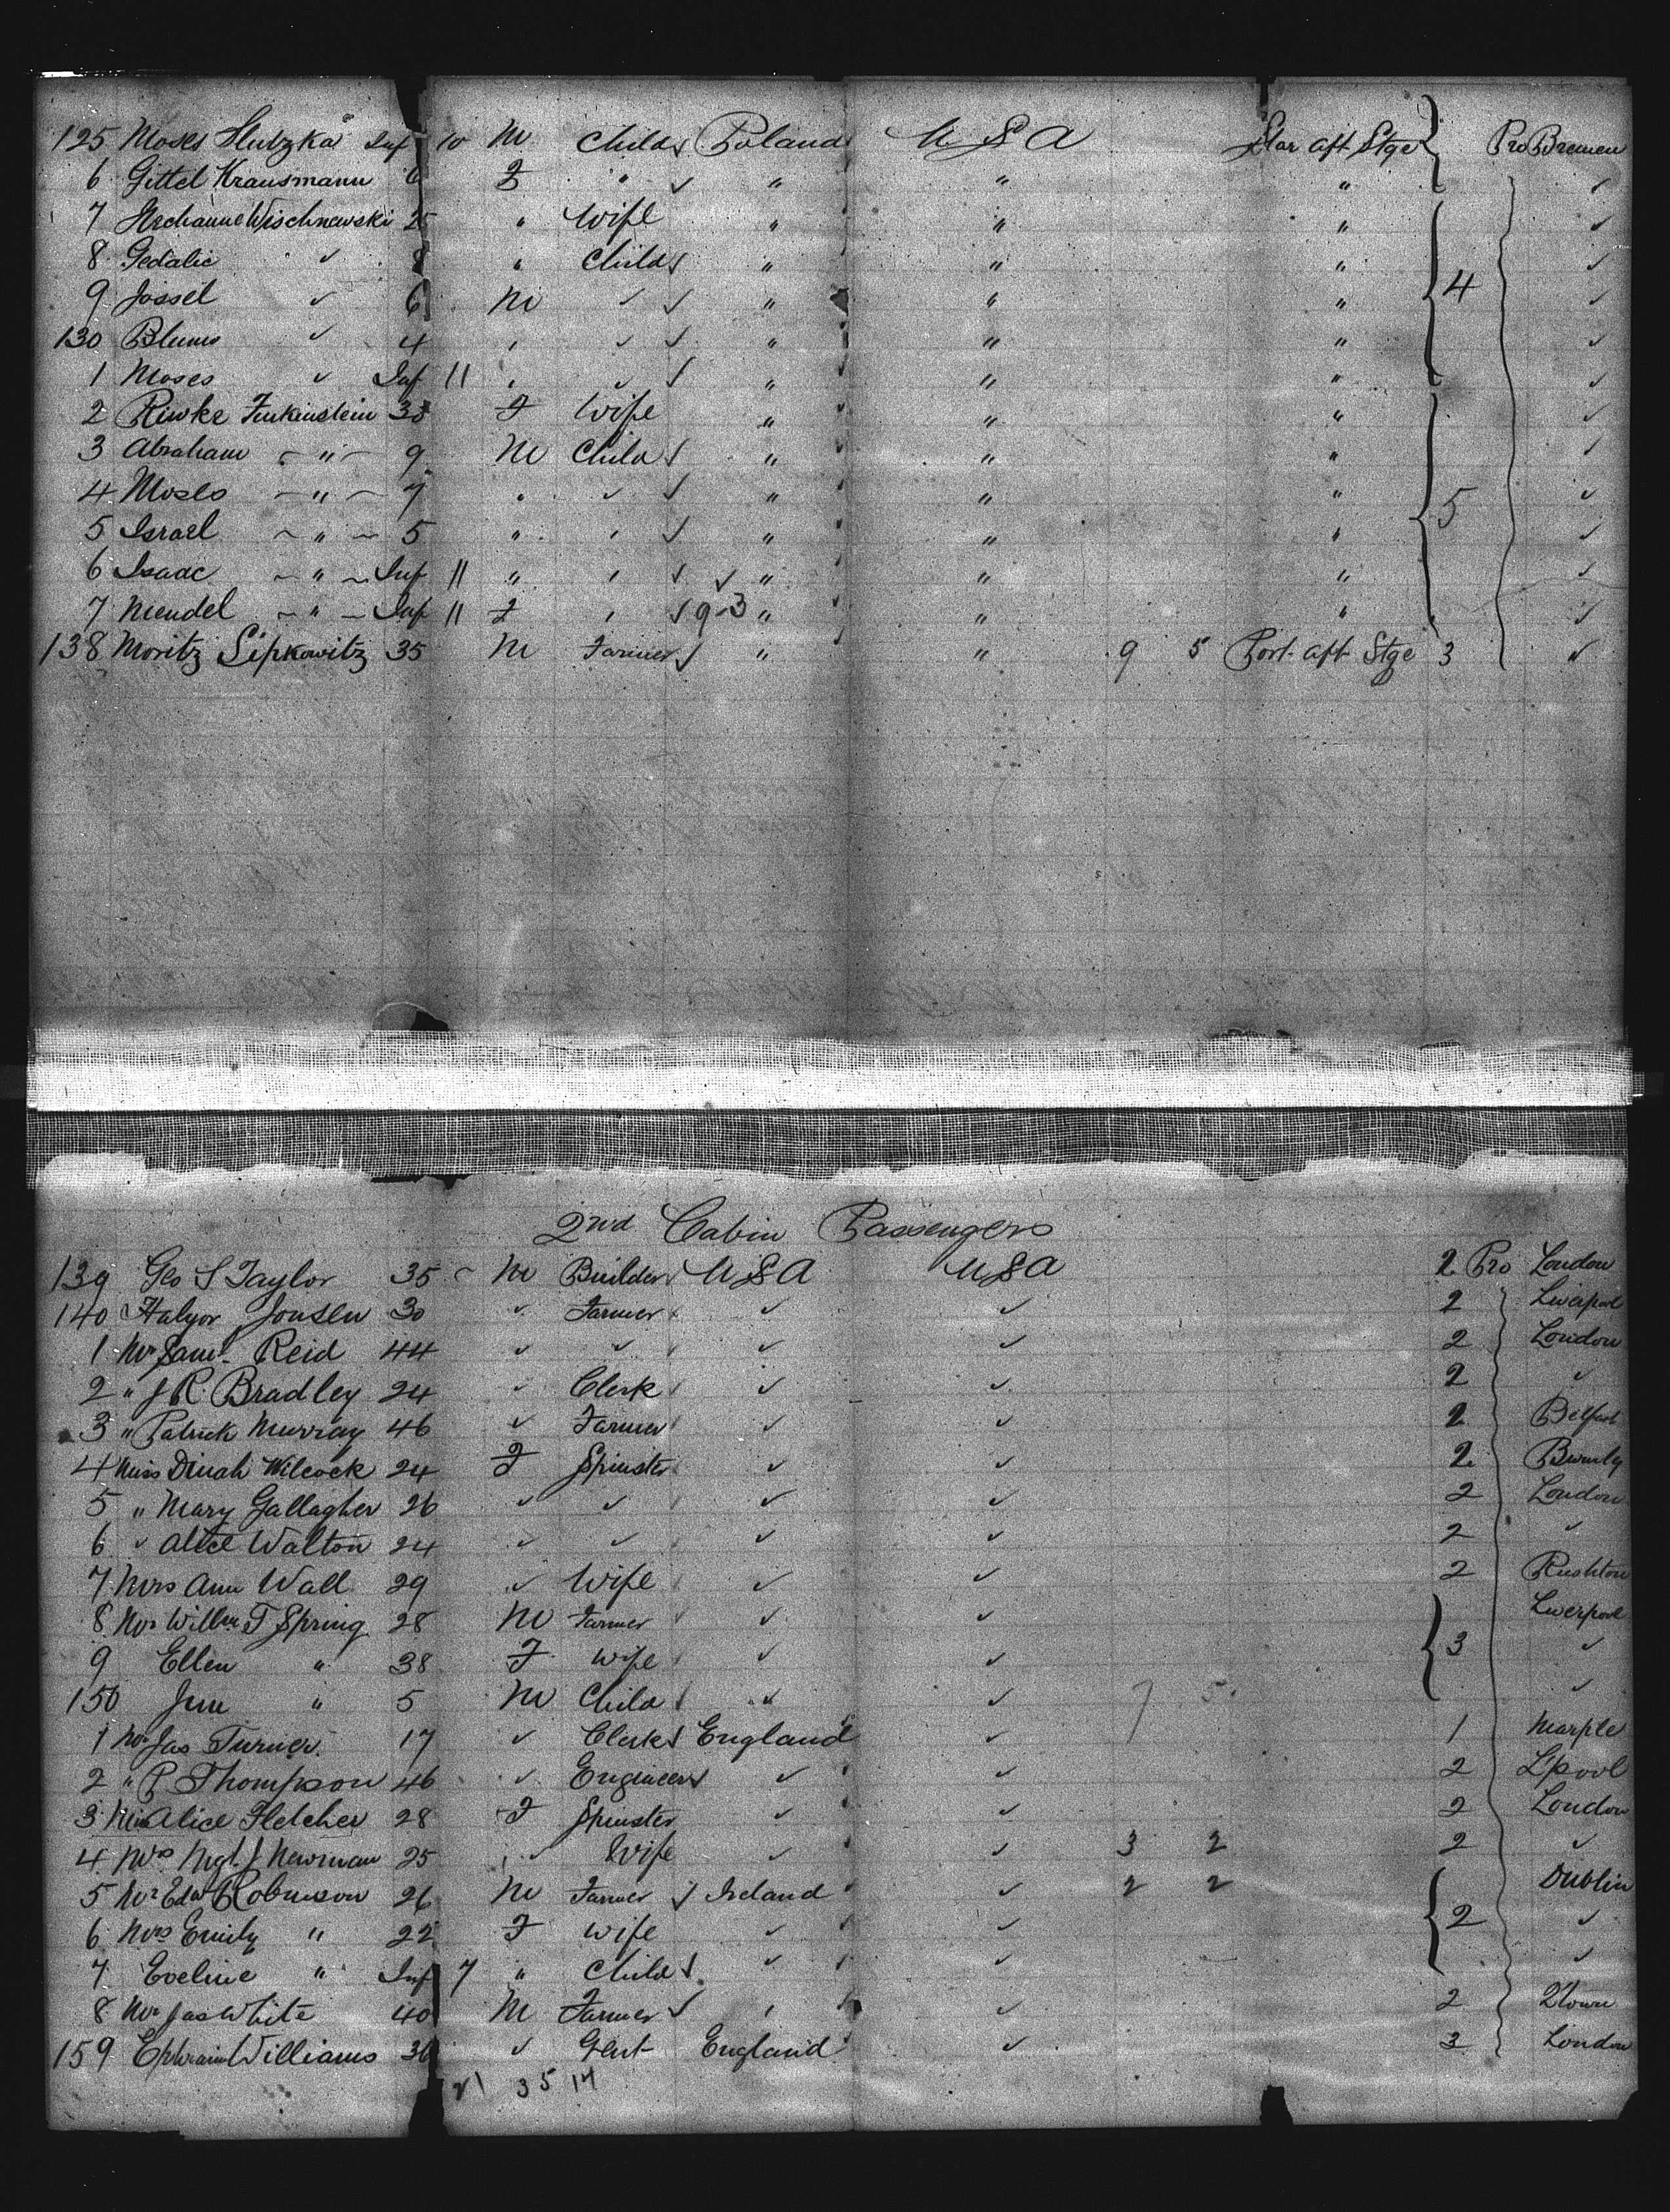 125 Moses Slutzka Inf 10 M Child Poland U.S.A Star aft Stge Pro Bremen
6 Gittel Krausmann 6 F " ✓ " " " ✓
7 Wischnewski 25 " Wife " " " ✓
8 Gedalie ✓ 8 " Child " " " 4 ✓
9 Jossel ✓ 6 M ✓ ✓ " " " ✓
130 Blume ✓ 4 " ✓ ✓ " " " ✓
1 Moses ✓ Inf 11 " ✓ " " " ✓
2 Riwke Funkenstein 38 F Wife " " " ✓
3 Abraham " 9 M Child " " " ✓
4 Moses " 7 " ✓ ✓ " " " 5 ✓
5 Israel " 5 " " ✓ " " " ✓
6 Isaac " Inf 11 " " ✓ ✓ " " " ✓
7 Mendel " Inf 11 F " ✓ 9-3 " " " ✓
138 Moritz Lipkowitz 35 M Farmer " " 9 5 Port aft Stge 3 "
2nd Cabin Passengers
139 Geo S Taylor 35 M Builder USA USA 2 Pro London
140 Halvor Jonsen 30 ✓ Farmer ✓ ✓ 2 Liverpool
1 Mr Saml Reid 44 ✓ ✓ ✓ ✓ 2 London
2 " J R Bradley 24 ✓ Clerk ✓ ✓ 2 ✓
3 " Patrick Murray 46 ✓ Farmer ✓ ✓ 2 Belfast
4 Miss Dinah Wilcock 24 F Spinster ✓ ✓ 2 Burnly
5 " Mary Gallagher 26 ✓ ✓ ✓ ✓ 2 London
6 " Alice Walton 24 ✓ ✓ ✓ ✓ 2 ✓
7 Mrs Ann Wall 29 ✓ Wife ✓ ✓ 2 Rushton
8 Mr Willm T Spring 28 M Farmer ✓ ✓ Liverpool
9 Ellen " 38 F Wife ✓ ✓ 3 ✓
150 " 5 M Child ✓ ✓ 7 5 ✓
1 Mr Jas Turner 17 ✓ Clerk England ✓ 1 Marple
2 " P Thompson 46 ✓ Engineer ✓ ✓ 2 L'pool
3 Miss Alice Fletcher 28 F Spinster ✓ ✓ 2 London
4 Mrs Mgt J Newman 25 ✓ Wife ✓ ✓ 3 2 2 ✓
5 Mr Edw Robinson 26 M Farmer Ireland ✓ 2 2 Dublin
6 Mrs Emily " 22 F Wife ✓ ✓ 2 ✓
7 Eveline " Inf 7 " Child ✓ ✓ ✓
8 Mr Jas White 40 M Farmer ✓ " ✓ 2 Qtown
159 Ephraim Williams 36 ✓ Gent England ✓ 3 London
21 35 14